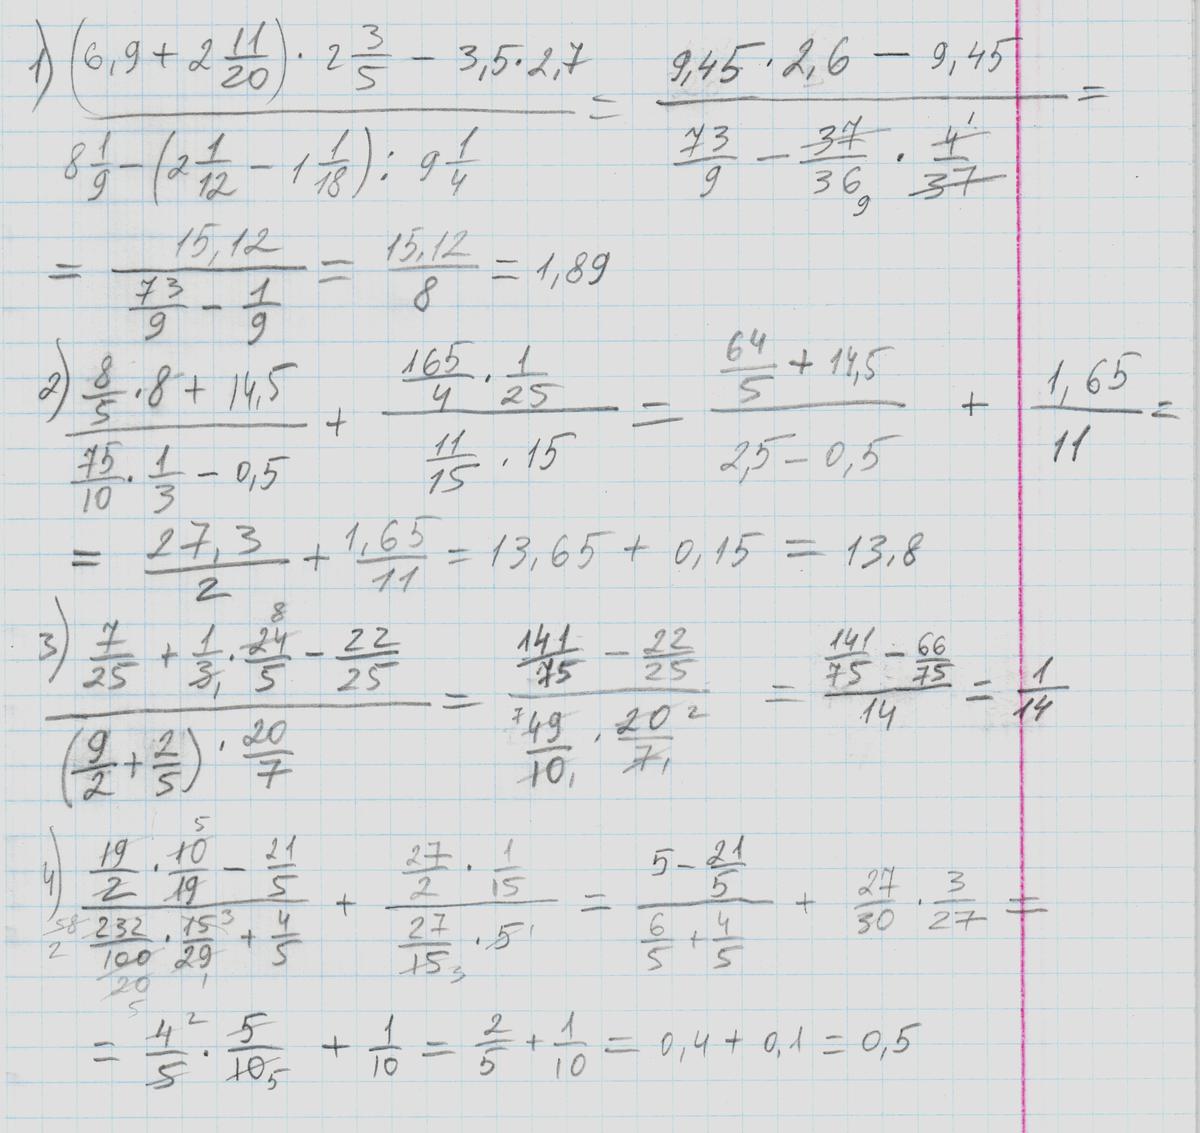 1) ((6,9 + 2 11/20) · 2 3/5 − 3,5·2,7)/(8 1/9 − (2 1/12 − 1 1/18) : 9 1/4) = (9,45 · 2,6 − 9,45)/(73/9 − 37/36 9 · 4 1/37) =
= 15,12/(73/9 − 1/9) = 15,12/8 = 1,89
2) (8/5 · 8 + 14,5)/(75/10 · 1/3 − 0,5) + (165/4 · 1/25)/(11/15 · 15) = (64/5 + 14,5)/(2,5 − 0,5) + 1,65/11 =
= 27,3/2 + 1,65/11 = 13,65 + 0,15 = 13,8
3) (7/25 + 1/3 1 · 24 8/5 − 22/25)/((9/2 + 2/5) · 20/7) = (141/75 − 22/25)/(7 49/10 1 · 20 2/7 1) = (141/75 − 66/75)/14 = 1/14
4) (19/2 · 10 5/19 − 21/5)/(58 2 232/100 20 5 · 75 3/29 1 + 4/5) + (27/2 · 1/15)/(27/15 3 · 5 1) = (5 − 21/5)/(6/5 + 4/5) + 27/30 · 3/27 =
= 4 2/5 · 5/10 5 + 1/10 = 2/5 + 1/10 = 0,4 + 0,1 = 0,5